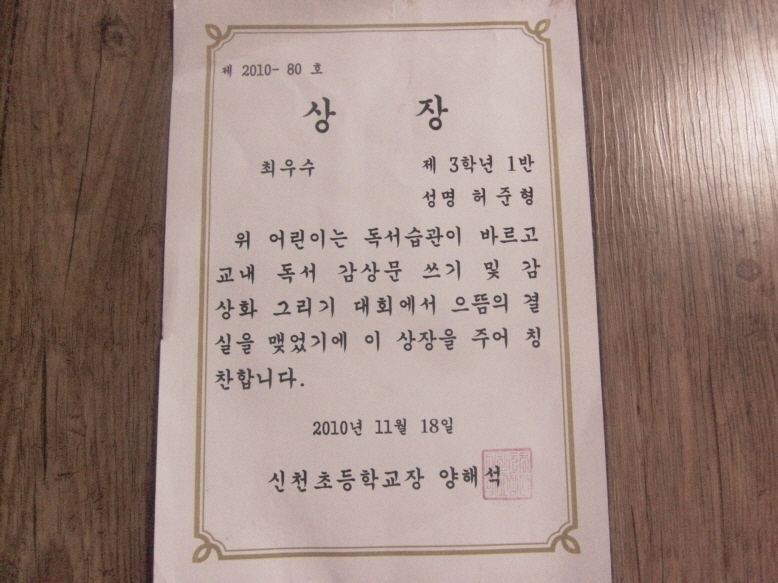 제 2010- 80 호
상 장
최우수 제 3학년 1반
성명 허준형
위 어린이는 독서습관이 바르고
교내 독서 감상문 쓰기 및 감
상화 그리기 대회에서 으뜸의 결
실을 맺었기에 이 상장을 주어 칭
찬합니다.
2010년 11월 18일
신천초등학교장 양해석